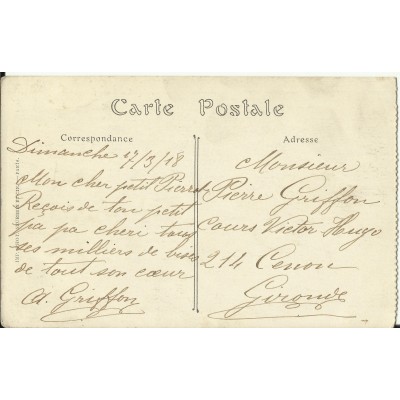 Carte Postale
Correspondance
Dimanche 17/3/18
Mon cher petit Pierre
Reçois de ton petit
pa pa cheri tous
ses milliers de bises
de tout son cœur
A. Griffon
Adresse
Monsieur
Pierre Griffon
Cours Victor Hugo
214 Cenon
Gironde